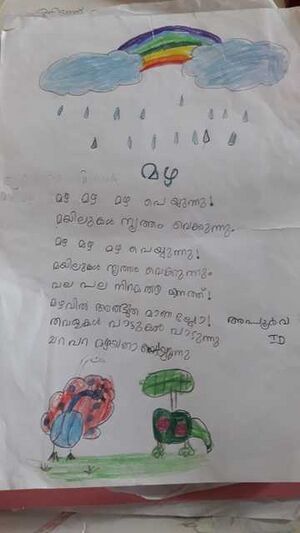 മഴ
മഴ മഴ മഴ പെയ്യുന്നു!
മയിലുകൾ നൃത്തം വെക്കുന്നു.
മഴ മഴ മഴ പെയ്യുന്നു!
മയിലുകൾ നൃത്തം വെക്കുന്നു.
പല പല നിറമതു
മഴവിൽ അത്ഭുത മാണല്ലോ!
തവളകൾ പാട്ടുകൾ പാടുന്നു
പറ പറ
അപൂർവ
I D